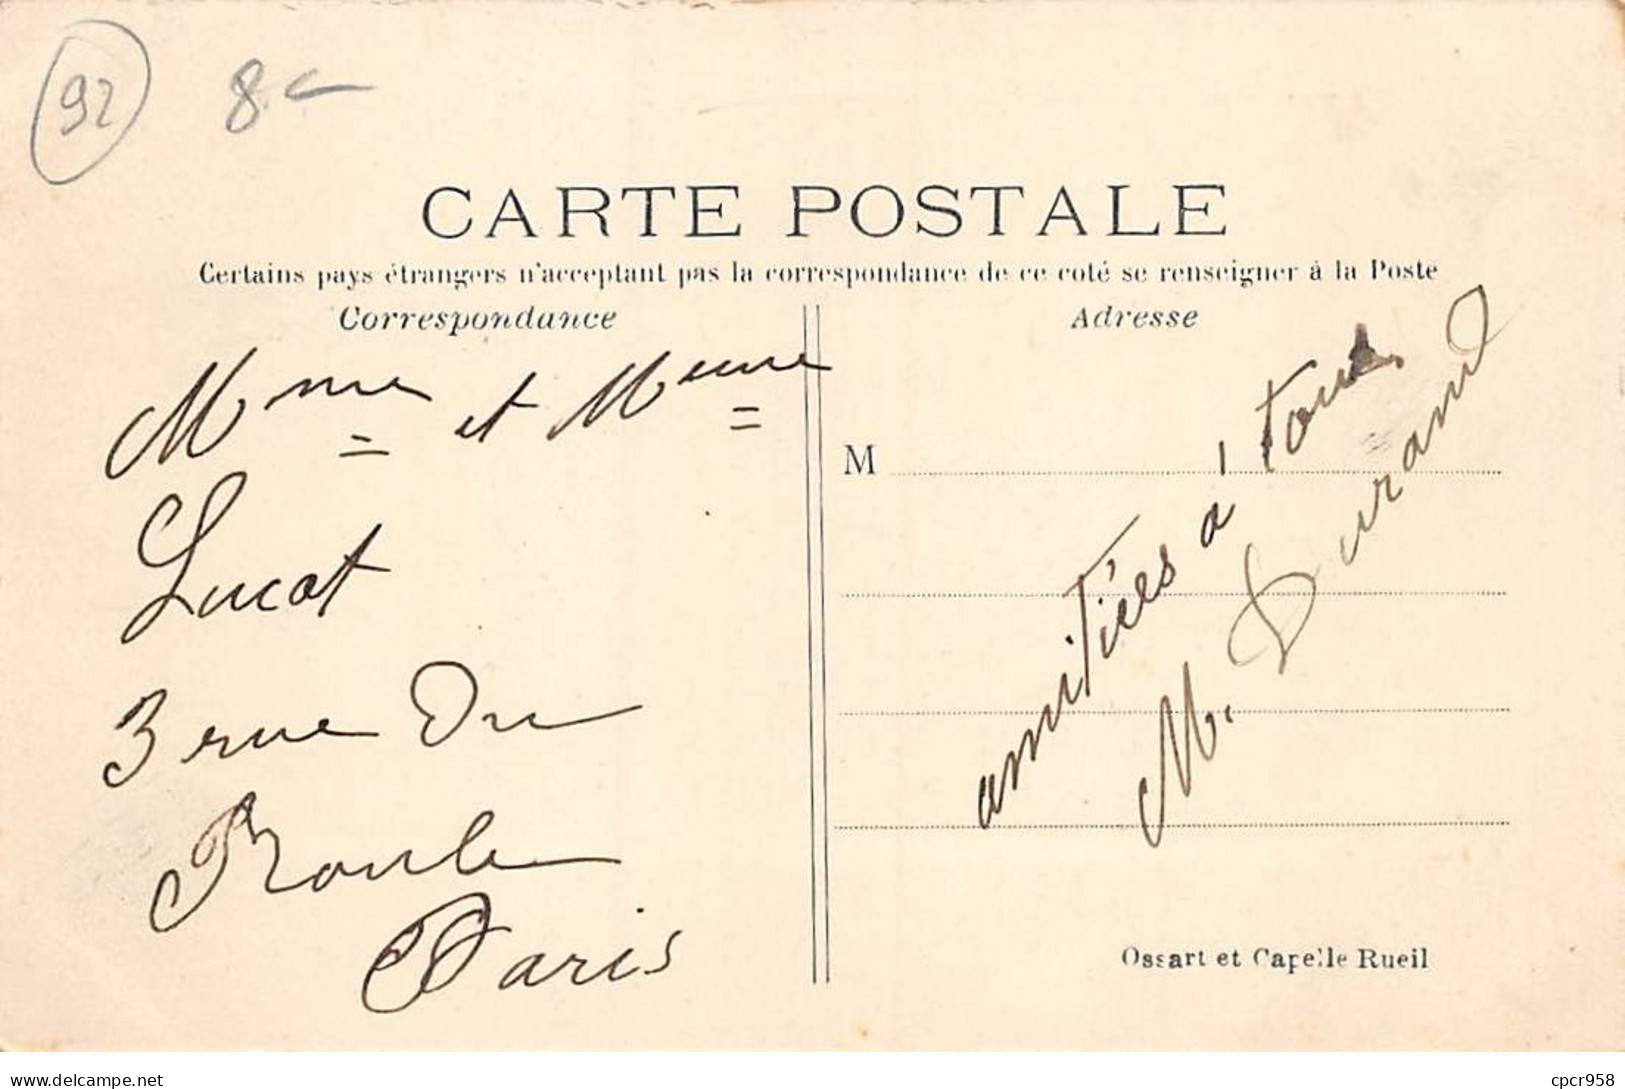 92 8
CARTE POSTALE
Certains pays étrangers n'acceptant pas la correspondance de ce coté se renseigner à la Poste
Correspondance
Adresse
Mme et
Lucot
3 rue Du
Roule
Paris
M
amitiées à tous
M. Durand
Ossart et Capelle Rueil
delcampe.net
cpcr958